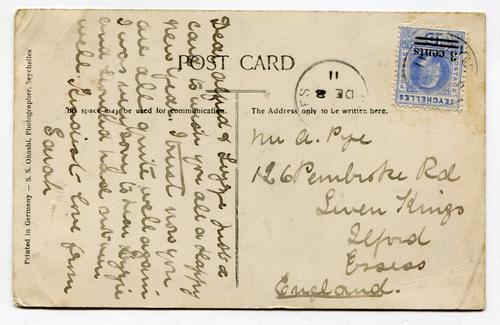 POST CARD
This space may be used for communication.
The Address only to be written here.
Printed in Germany — S. S. Ohashi, Photographer, Seychelles
Dear Alfred & Lizzie Just a
card to wish you all a Happy
New Year. I trust now you
are all quite well again.
I was very sorry to hear Lizzie
and had not been
well. Kindest love from
Sarah
3 cents
SEYCHELLES
DE 8
11
Mr A. Pye
126 Pembroke Rd
Seven Kings
Ilford
Essex
England.